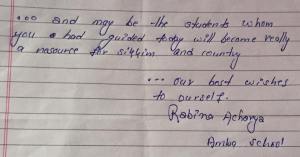 ... and may be the students whom
you a had guided today will become really
a resource for sikkim and country
... our best wishes
to ourself.
Rabina Acharya
Amba school